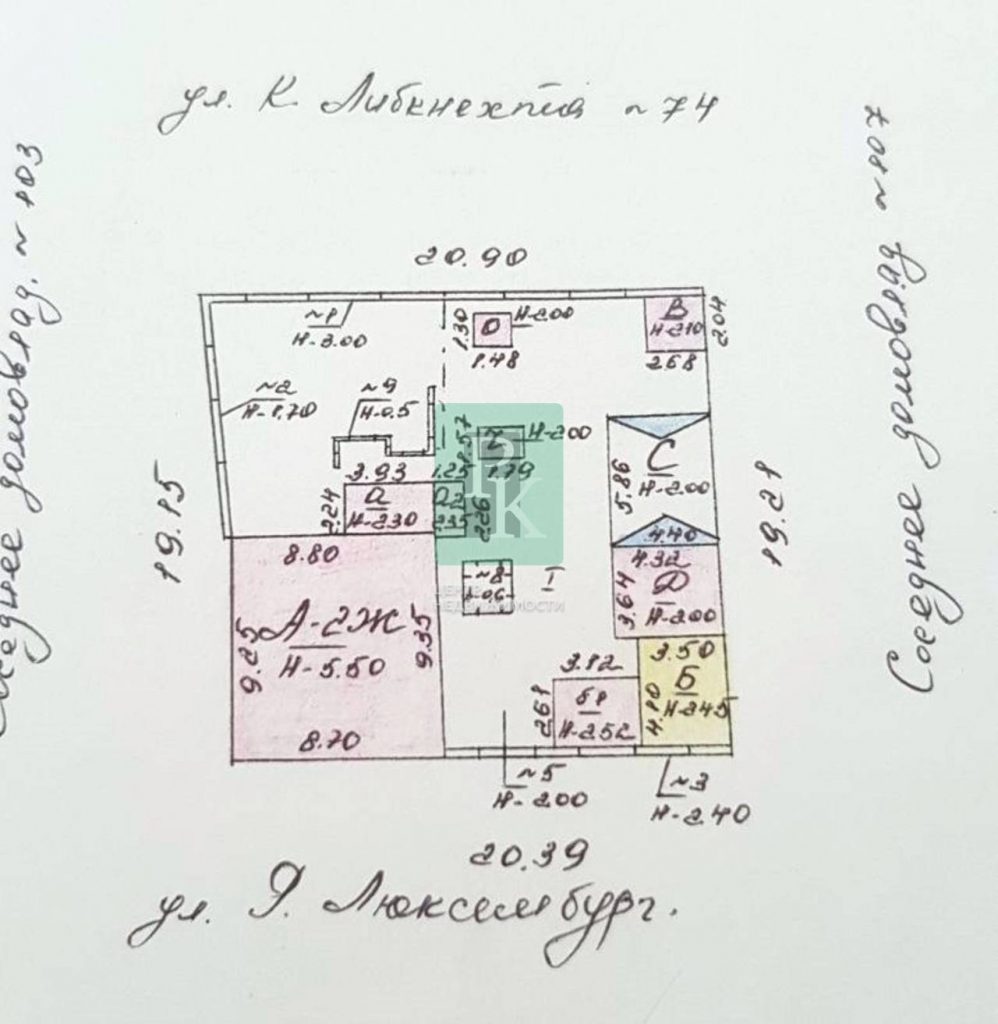 ул. К. Либкнехта ~ 74
Соседнее домовлад. ~ 103
Соседнее домовлад ~ 107
20.90
~1
H-3.00
1.30
О
H-2.00
1.48
В
H-2.10
2.04
2.68
~2
H-1.70
~9
H-0.5
1.57
H-2.00
1.79
С
H-2.00
5.86
4.40
19.15
19.21
3.93
1.25
2.24
а
H-2.30
2.35
2.26
8.80
4.32
3.64
Д
H-2.00
~8
H-0.6
I
ЦЕНТР
НЕДВИЖИМОСТИ
РК
А-2Ж
H-5.50
9.25
9.35
8.70
3.12
2.61
б1
H-2.52
3.50
Б
H-2.45
4.10
~5
H-2.00
~3
H-2.40
20.39
ул. Р. Люксембург.